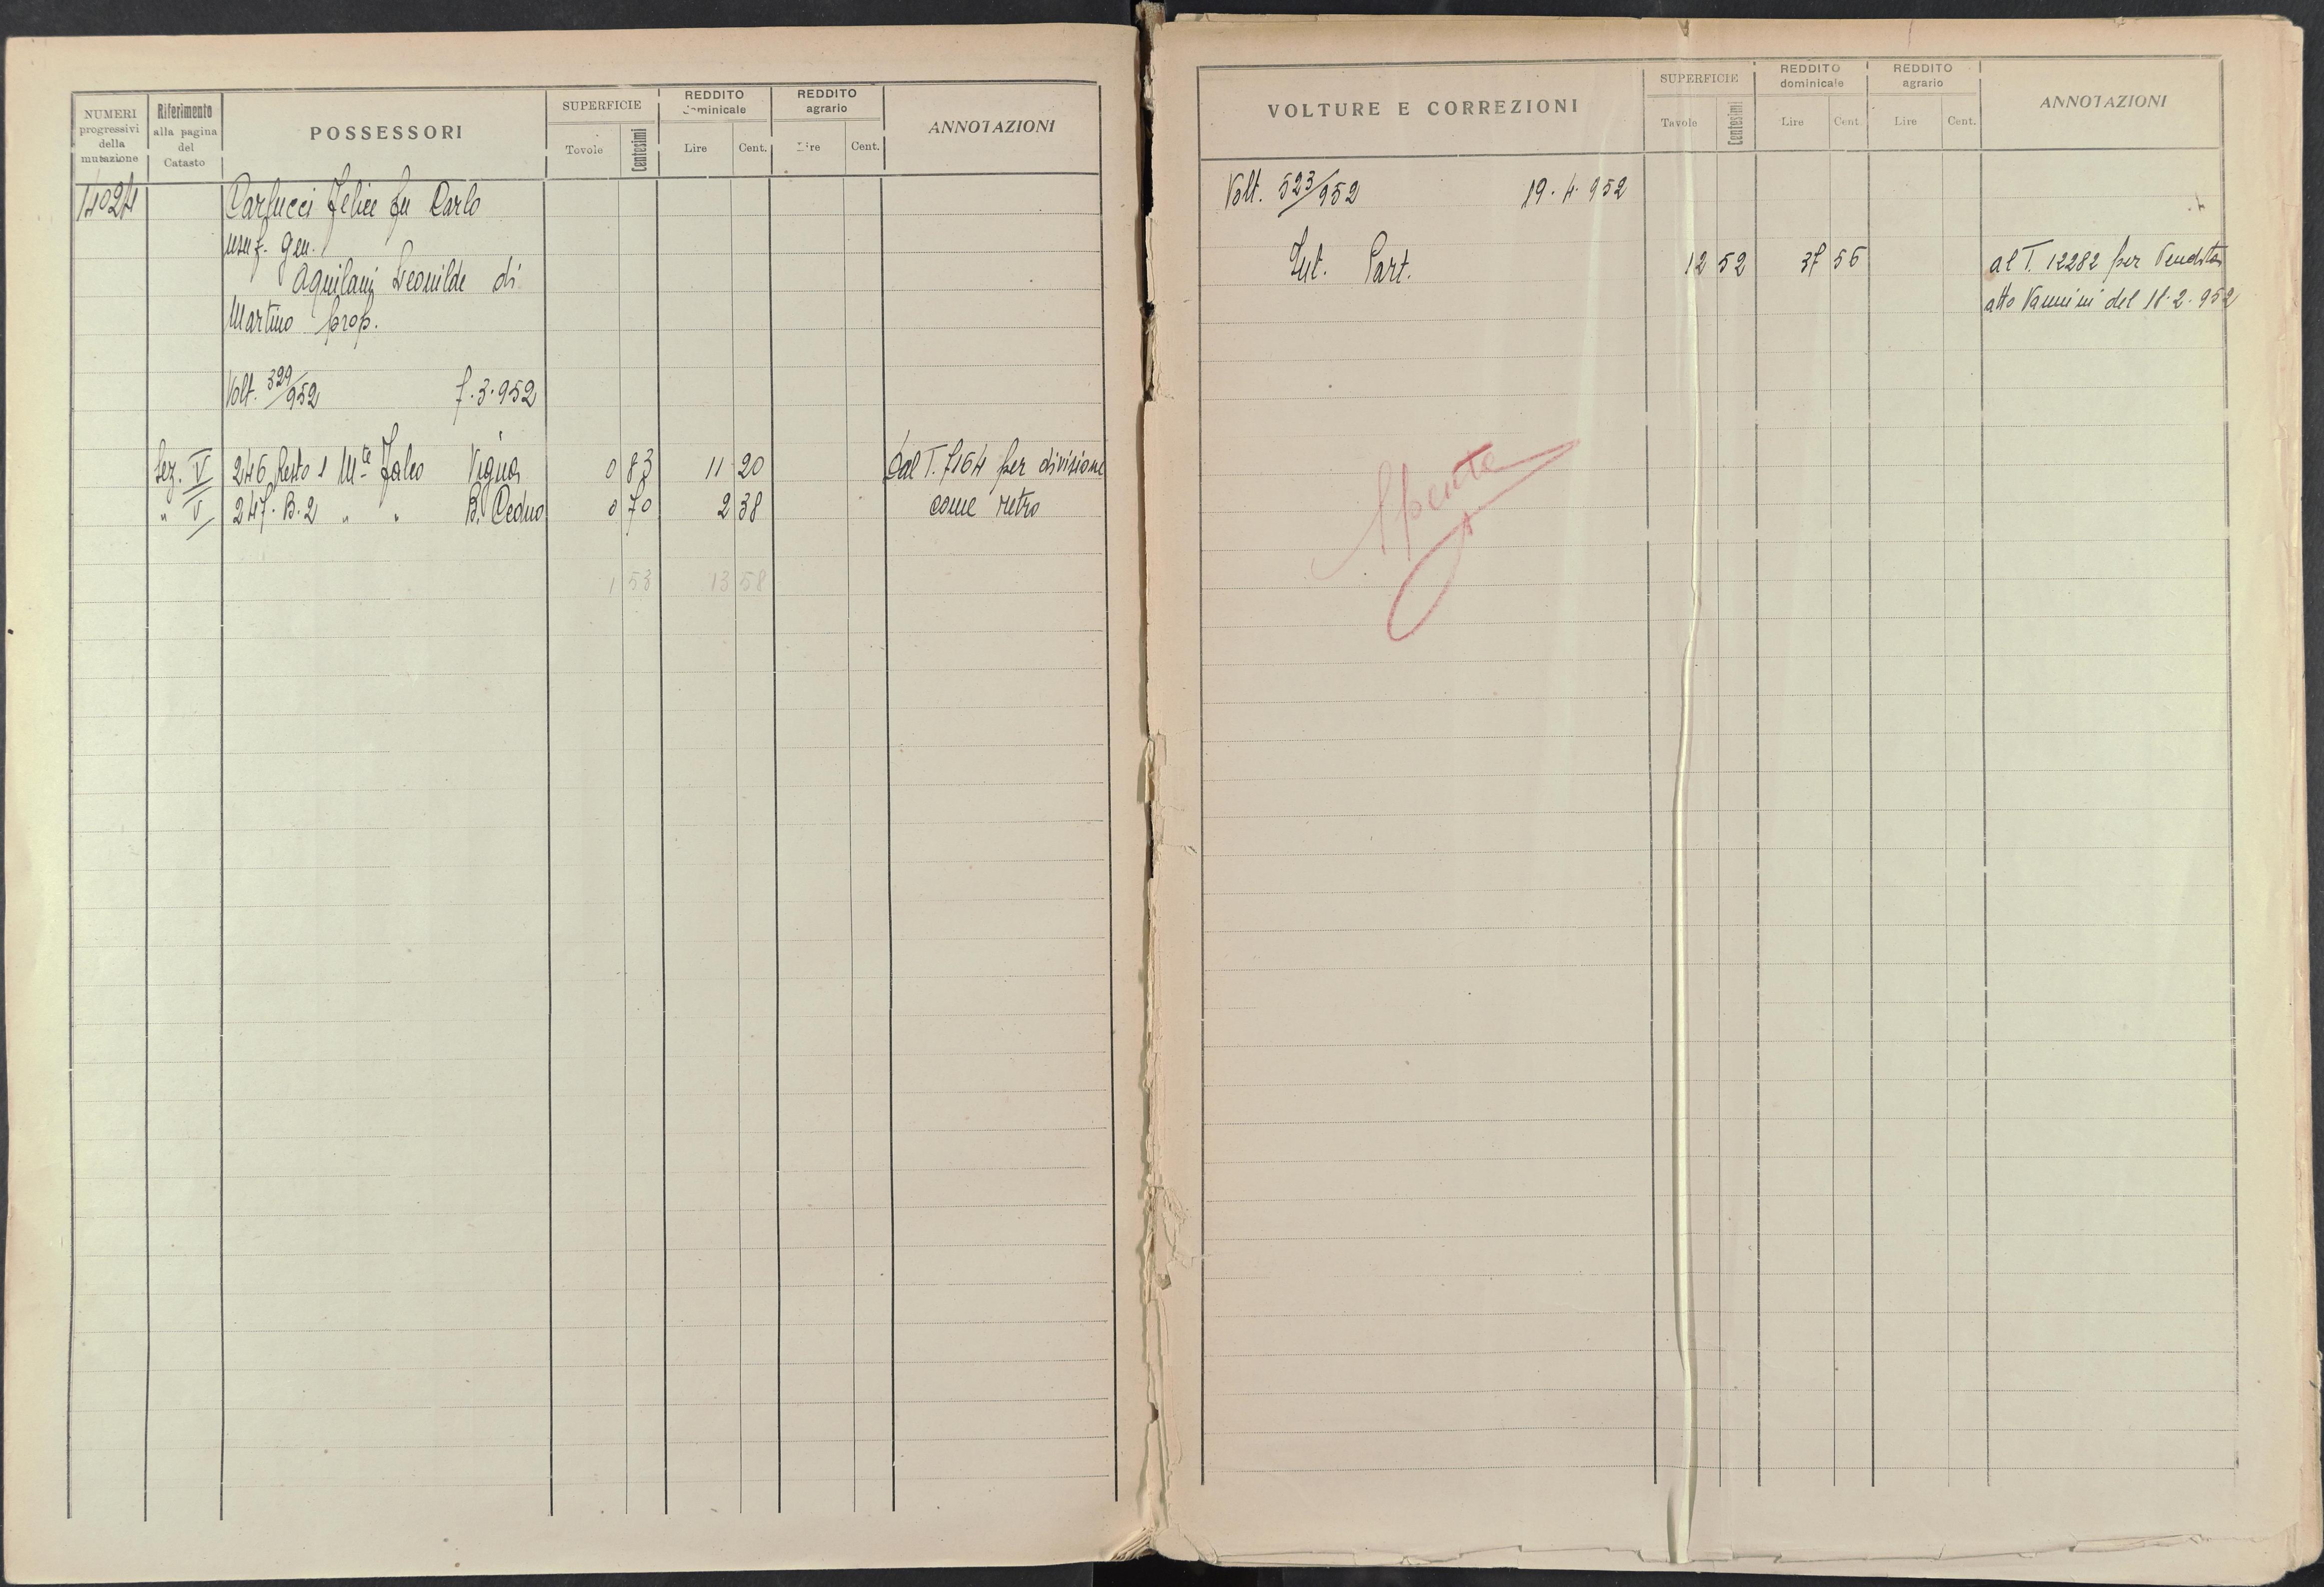 NUMERI progressivi della mutazione
Riferimento alla pagina del Catasto
POSSESSORI
SUPERFICIE
Tavole
Centesimi
REDDITO dominicale
Lire
Cent.
REDDITO agrario
Lire
Cent.
ANNOTAZIONI
14024
Carlucci Felice fu Carlo
usuf. gen.
Aquilani Leonilde di
Martino prop.
Volt. 329/952 7.3.952
Sez. V 246 Resto 1 Mte Falco Vigna 0 83 11 20 Dal T. 7164 per divisione
" V 247. B.2 " " B. Ceduo 0 70 2 38 come retro
1 53 13 58
VOLTURE E CORREZIONI
SUPERFICIE
Tavole
Centesimi
REDDITO dominicale
Lire
Cent.
REDDITO agrario
Lire
Cent.
ANNOTAZIONI
Volt. 523/952 19.4.952
Int. Part. 12 52 37 56 al T. 12282 per Vendita
atto Vannini del 11.2.952
Spenta